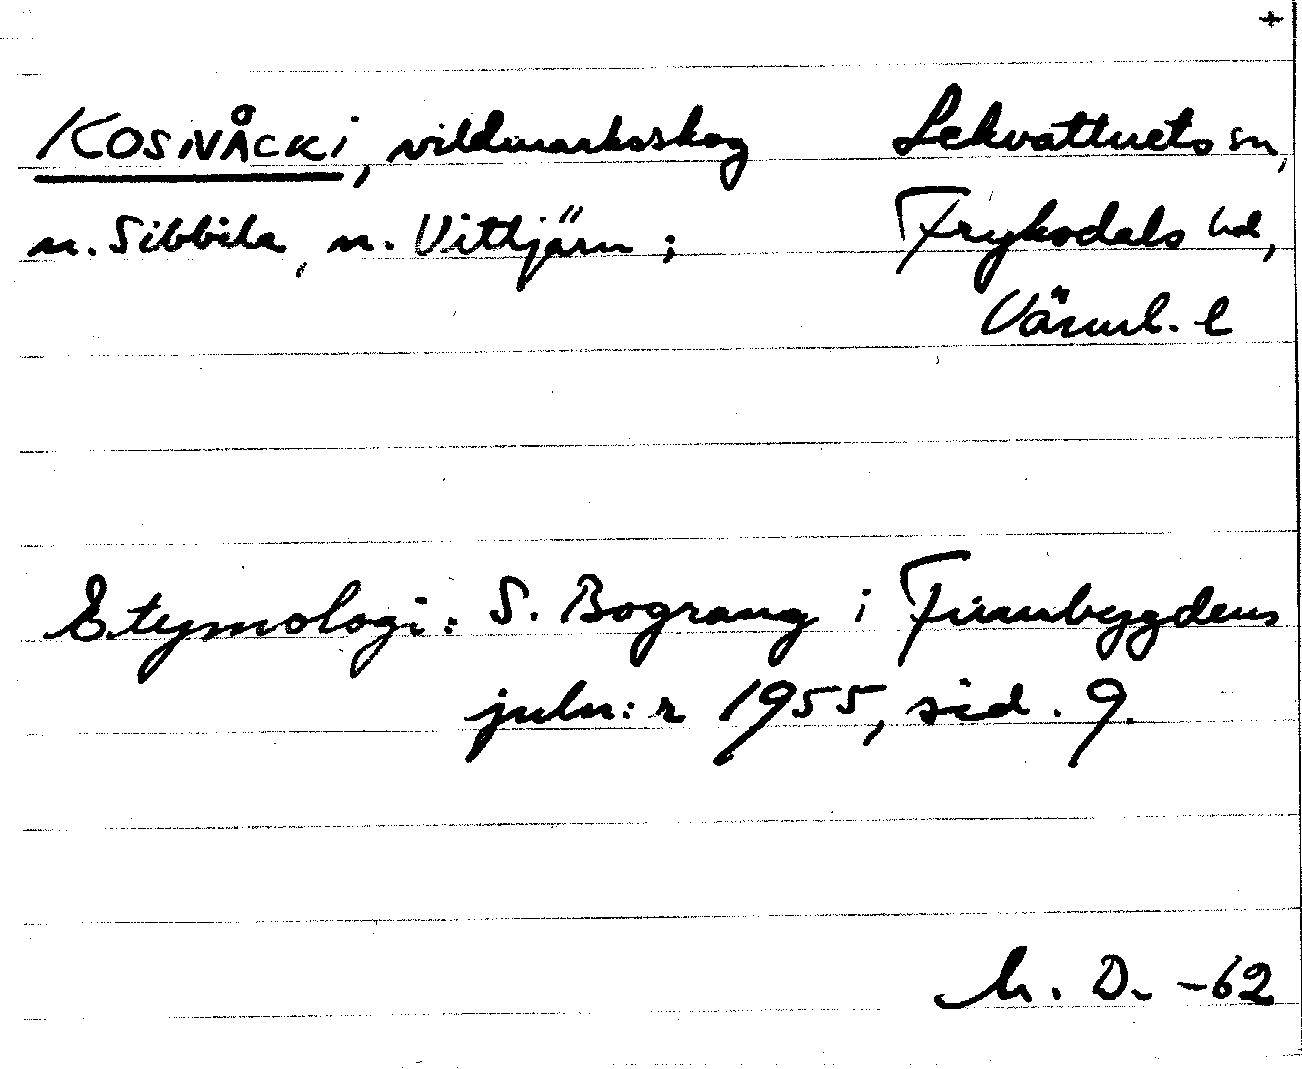 +
KOSNÅCKI, vildmarksskog Lekvattnets sn,
n. Sibbila, n. Vittjärn; Fryksdals hd,
Värml. l
Etymologi: S. Bograng i Finnbygdens
juln:r 1955, sid. 9.
M. D. -62